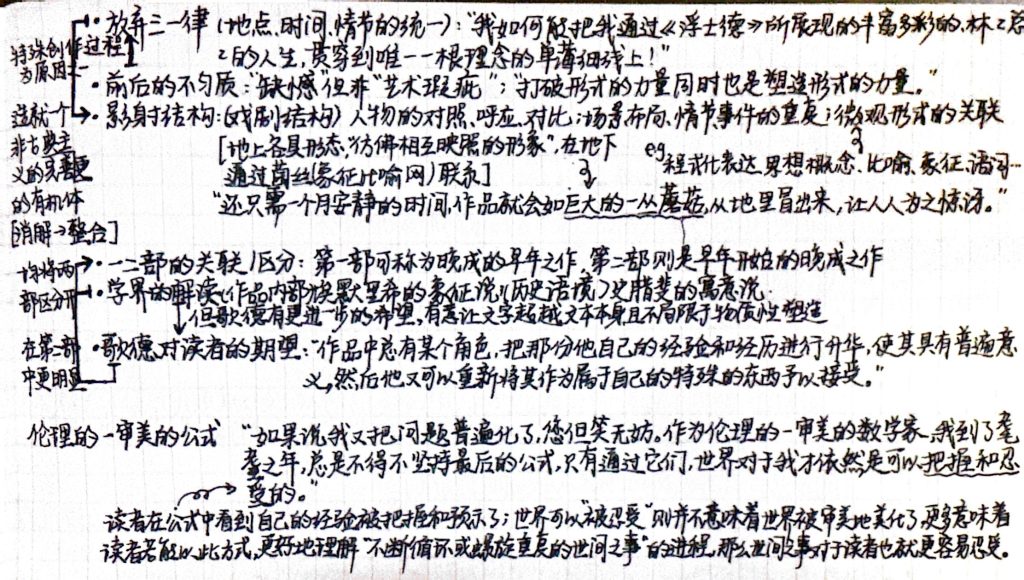 特殊创作过程为原因
· 放弃三一律（地点、时间、情节的统一）："我如何能把我通过《浮士德》所展现的丰富多彩的、林林总
总的人生，贯穿到唯一一根理念的单薄细线上！"
· 前后的不匀质："缺憾"但非"艺术瑕疵"；"打破形式的力量同时也是塑造形式的力量。"
造就个非古典主义的完善的有机体
[消解→整合]
· 影射结构：（戏剧结构）人物的对照、呼应、对比；场景布局、情节事件的重复；微观形式的关联
[地上各具形态，"彷佛相互映照的形象"，在地下 eg 程式化表达、思想概念、比喻、象征、语词…
通过菌丝（象征比喻网）联系]
"还只需一个月安静的时间，作品就会如巨大的一丛蘑菇，从地里冒出来，让人人为之惊讶。"
均将两部区分开
· 一二部的关联/区分：第一部可称为晚成的早年之作，第二部则是早年开始的晚成之作
· 学界的解读：（作品内部）埃默里希的象征说；（历史语境）史腊斐的寓意说
但歌德有更进一步的希望，有意让文字超越文本本身且不局限于物质性塑造
在第二部中更明显
· 歌德对读者的期望："作品中总有某个角色，把那份他自己的经验和经历进行升华，使其具有普遍意
义，然后他又可以重新将其作为属于自己的特殊的东西予以接受。"
伦理的—审美的公式 "如果说我又把问题普遍化了，您但笑无妨。作为伦理的—审美的数学家，我到了耄
耋之年，总是不得不坚持最后的公式，只有通过它们，世界对于我才依然是可以把握和忍
受的。"
读者在公式中看到自己的经验被把握和预示了；世界可以"被忍受"则并不意味着世界被审美地美化了，更多意味着
读者若能以此方式，更好地理解"不断循环或螺旋重复的世间之事"的进程，那么世间之事对于读者也就更容易忍受。